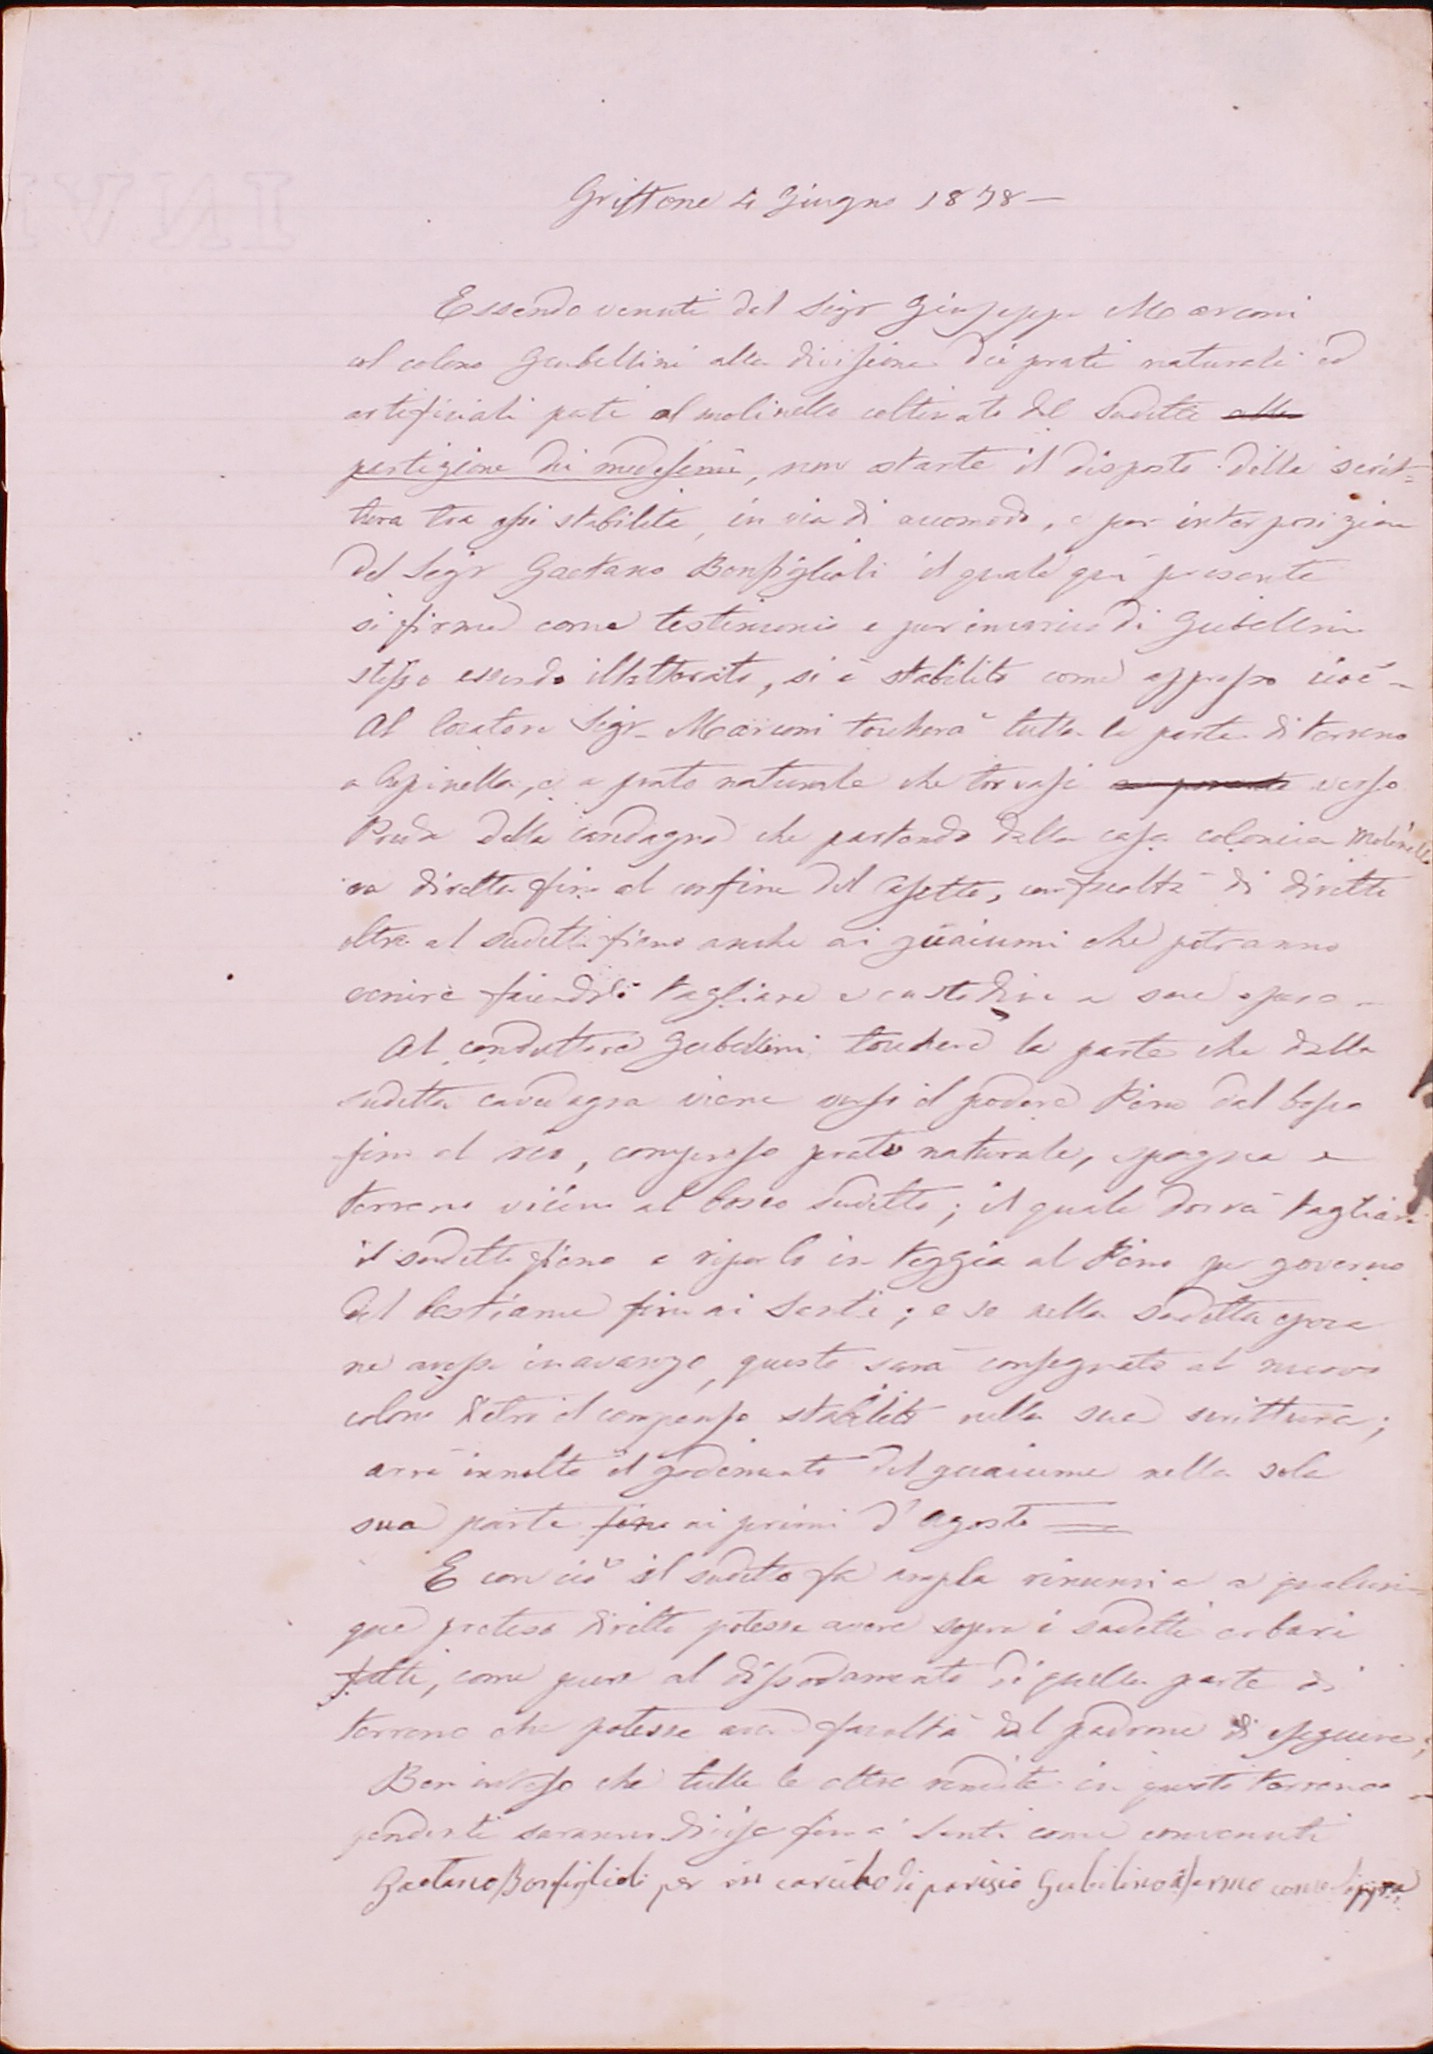 Griffone 4 Giugno 1878 —
Essendo venuti del Sigr Giuseppe Marconi
col colono Gubellini alla divisione dei prati naturali ed
artificiali posti al molinello coltivato dal sudetto alla
partizione dei medesimi, non ostante il disposto della scrit=
tura tra essi stabilita, in via di accomodo, e per interposizione
del Sigr Gaetano Bonfiglioli il quale qui presente
si firma come testimonio e per incarico di Gubellini
stesso essendo illetterato, si è stabilito come appresso cioè —
Al locatore Sigr Marconi toccherà tutta la parte di terreno
a lupinella, e a prato naturale che trovasi a ponente verso
della cavedagna che partendo dalla casa colonica Molinello
va diretta fino al confine del con facoltà di diritto
oltre al sudetto fieno anche ai guaiumi che potranno
venire facendoli tagliare e custodire a sue spese —
Al conduttore Gubellini toccherà la parte che dalla
sudetta cavedagna viene verso il podere Pino dal bosco
fino al rio, compreso prato naturale, spagna e
terreno vicino al bosco sudetto; il quale dovrà tagliare
il sudetto fieno e riporlo in teggia al Pino per governo
del bestiame fino ai Santi; e se nella sudetta epoca
ne avesse in avanzo, questo sarà consegnato al nuovo
colono dietro il compenso stabilito nella sua scrittura;
avrà inoltre il godimento del guaiume nella sola
sua parte fino ai primi d'Agosto
E con ciò il sudetto fa ampla rinunzia a qualun=
que preteso diritto potesse avere sopra i sudetti erbari
fatti, come pure al dissodamento di quella parte di
terreno che potesse aver facoltà dal padrone di eseguire;
Ben inteso che tutte le altre rendite in questo terreno
pendenti saranno divise fino a' Santi come convenuto
Gaetano Bonfiglioli per in caricho di Gubilini afermo come sopra